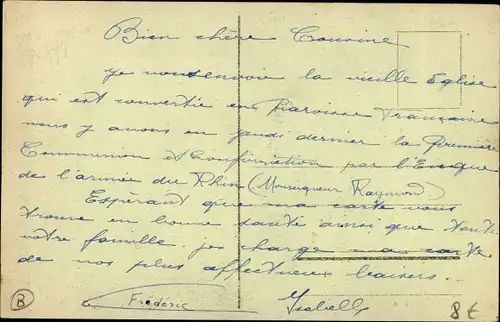 Bien chère Cousine
je vous envoie la vieille Eglise
qui est convertie en Paroisse Française
nous y avons eu jeudi dernier la Première
Communion et Confirmation par l'Eveque
de l'armée du Rhin (Monseigneur Raymond)
Espérant que ma carte vous
trouve en bonne santé ainsi que toute
votre famille. je charge ma carte
de nos plus affectueux baisers.
Frédéric Isabelle
B 8€